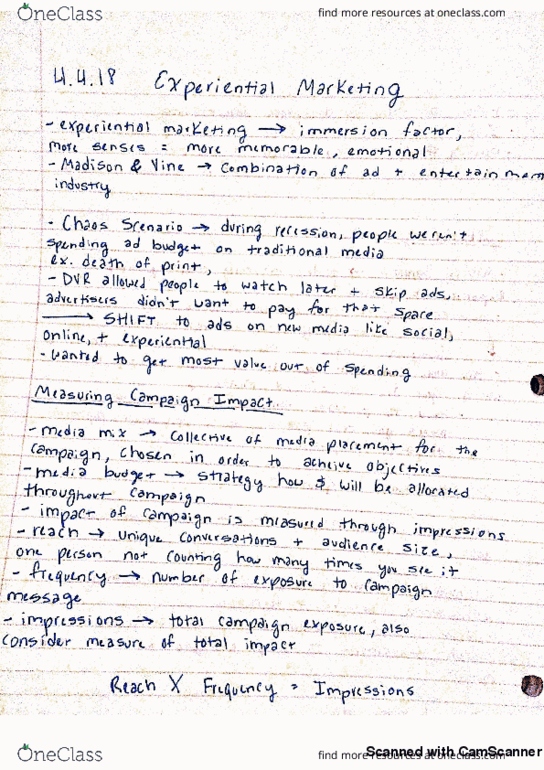 OneClass find more resources at oneclass.com
4.4.18 Experiential Marketing
- experiential marketing → immersion factor,
more senses = more memorable, emotional
- Madison & Vine → combination of ad + entertainment
industry
- Chaos Scenario → during recession, people weren't
spending ad budget on traditional media
ex. death of print,
- DVR allowed people to watch later + skip ads,
advertisers didn't want to pay for that space
→ SHIFT to ads on new media like social,
online, + experiential
- wanted to get most value out of spending
Measuring Campaign Impact
- media mix → collective of media placement for the
campaign, chosen in order to acheive objectives
- media budget → strategy how $ will be allocated
throughout campaign
- impact of campaign is measured through impressions
- reach → unique conversations + audience size,
one person not counting how many times you see it
- frequency → number of exposure to campaign
message
- impressions → total campaign exposure, also
consider measure of total impact
Reach X Frequency = Impressions
OneClass find more resources at oneclass.com
Scanned with CamScanner